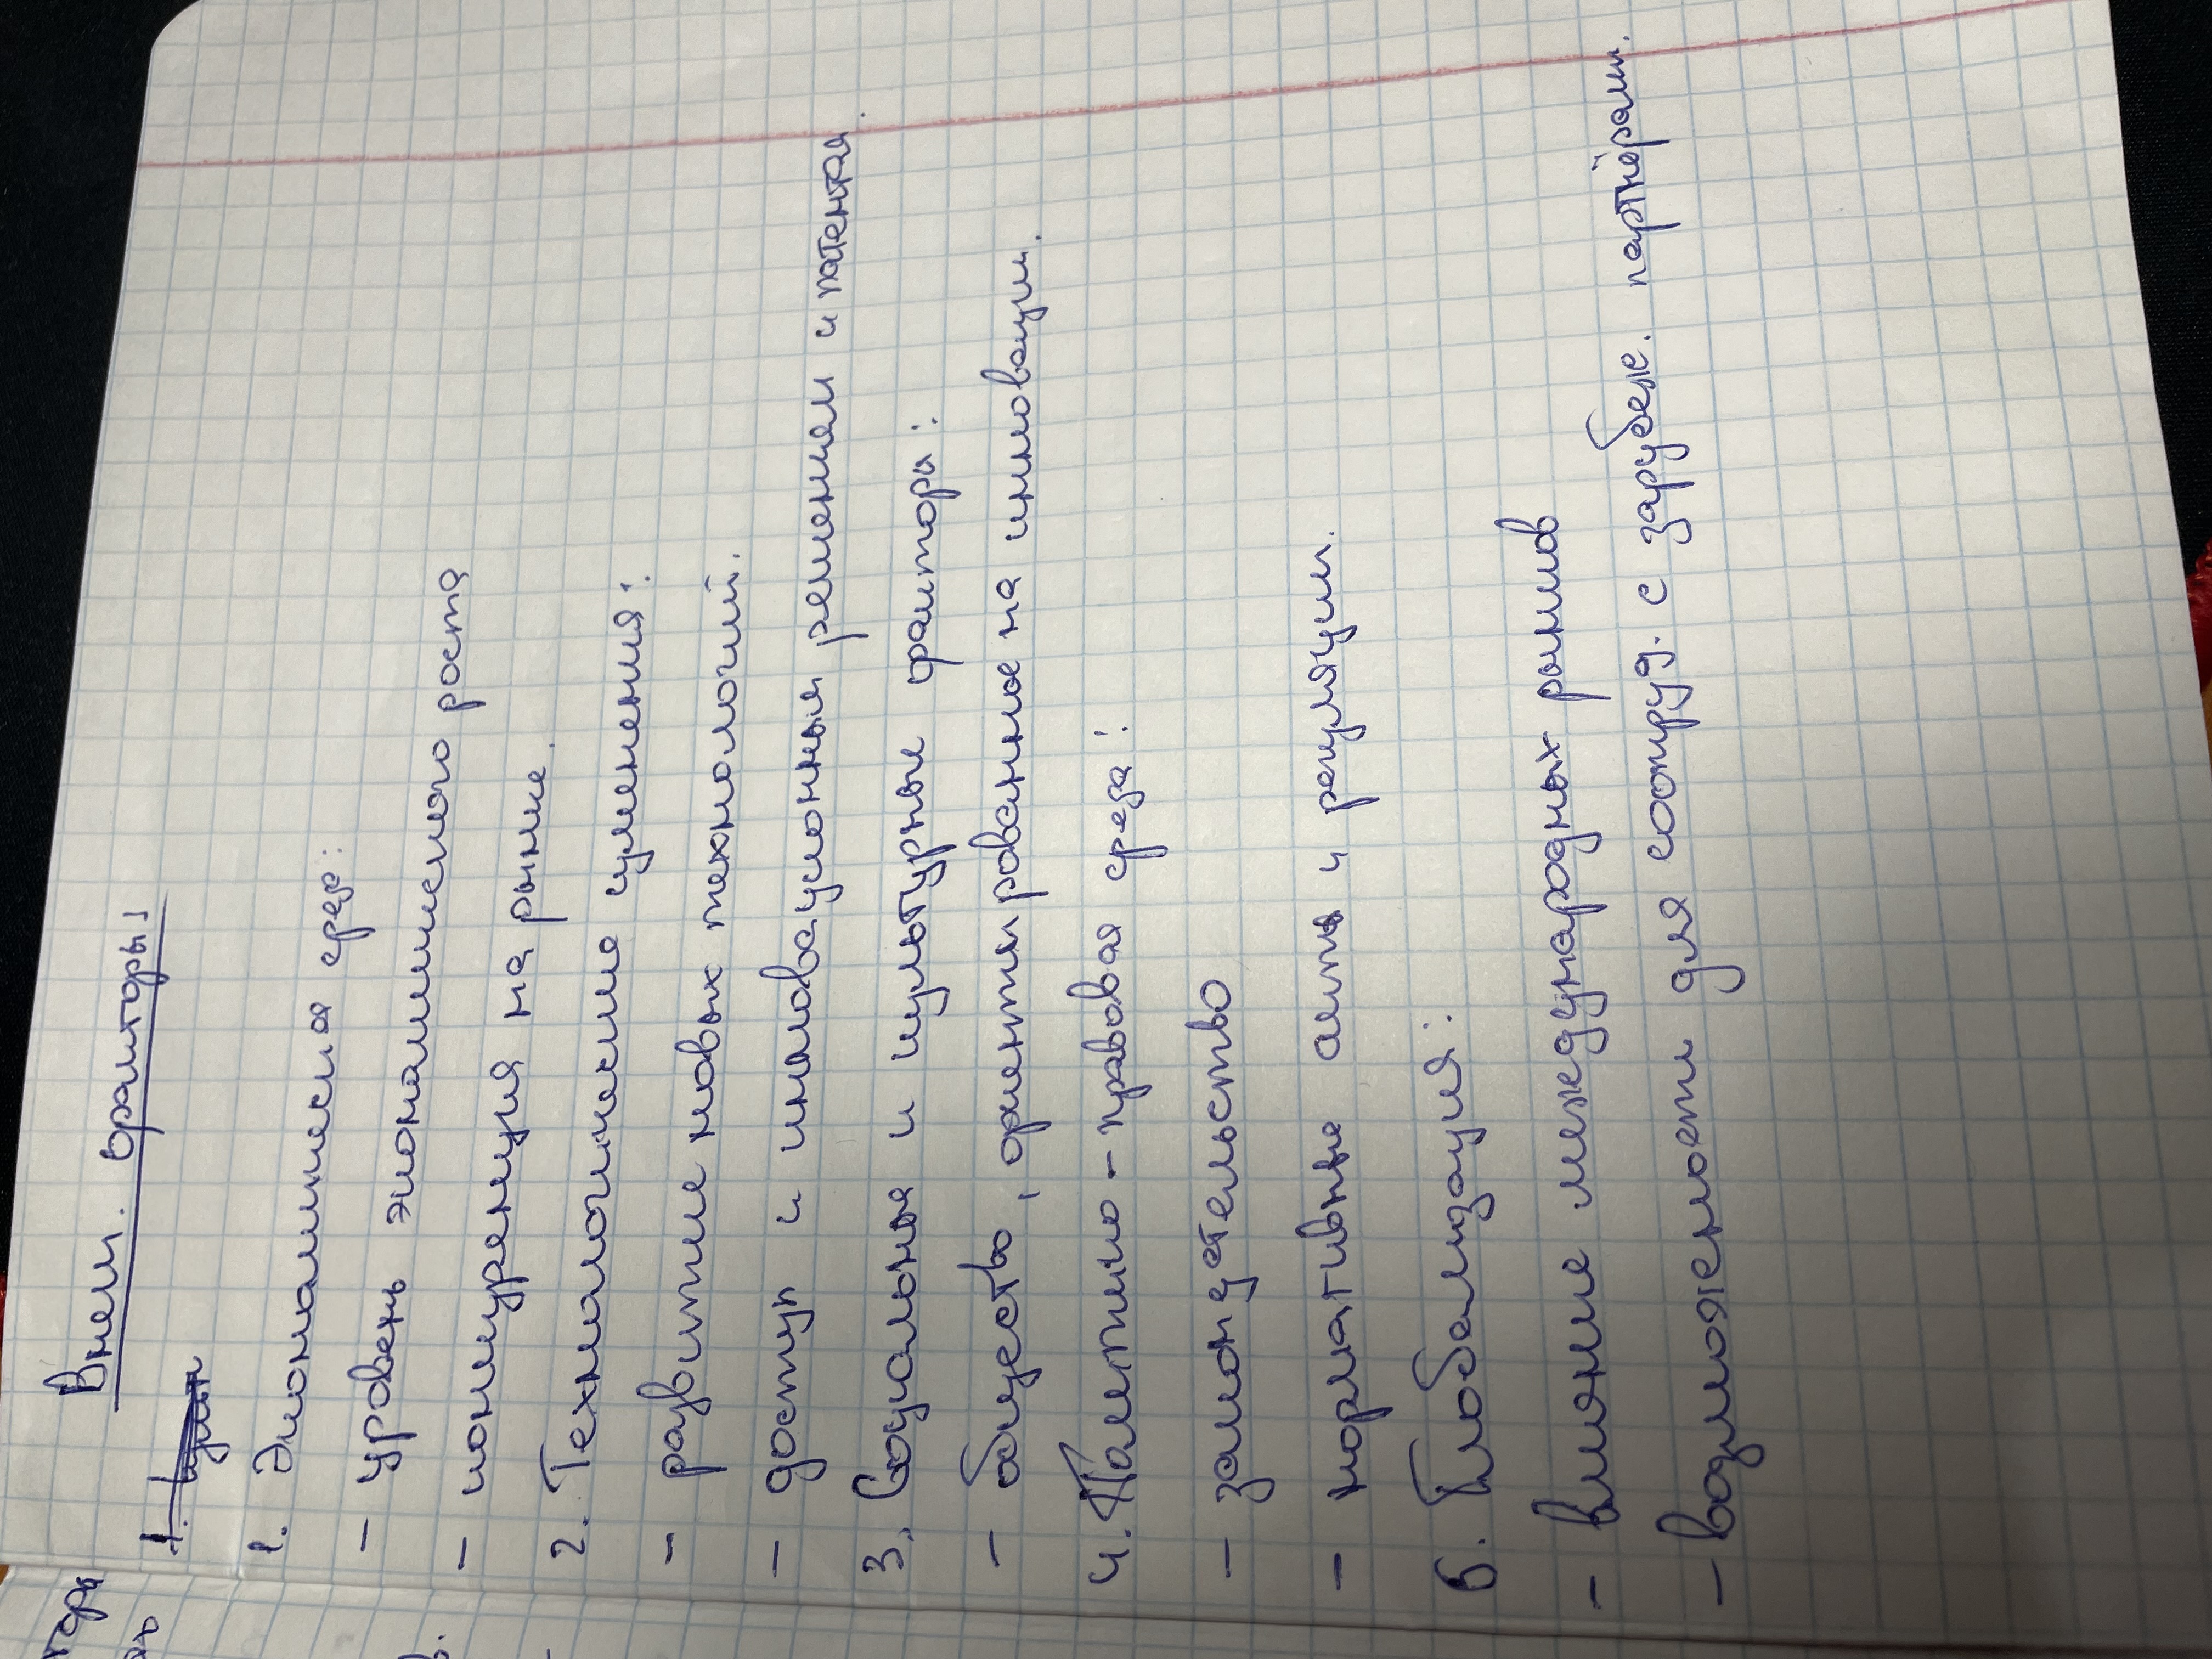 Внеш. факторы:
1. Экономическая среда:
- уровень экономического роста
- конкуренция на рынке.
2. Технологические изменения:
- развитие новых технологий.
- доступ к инновационным решениям и патентам.
3. Социальные и культурные факторы:
- общество, ориентированное на инновации.
4. Политико-правовая среда:
- законодательство
- нормативные акты и регуляции.
5. Глобализация:
- влияние международных рынков
- возможности для сотруд. с зарубеж. партнёрами.